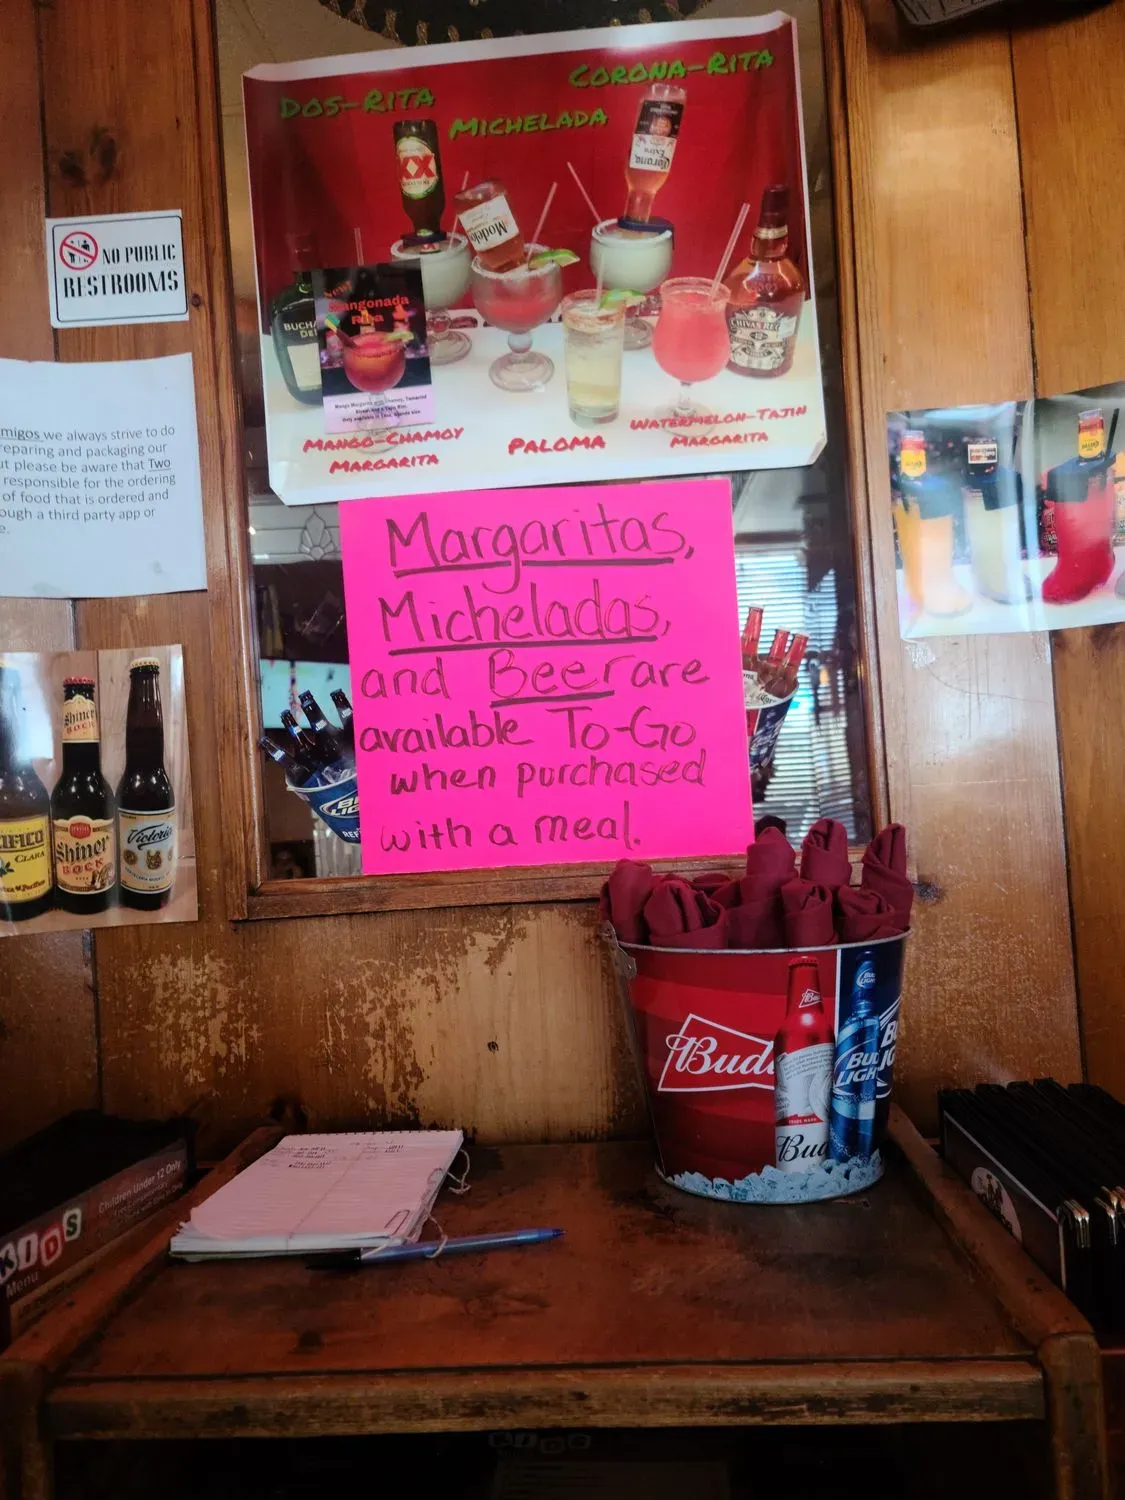 DOS-RITA
MICHELADA
CORONA-RITA
XX
Modelo
Corona
Extra
BUCHA
DE
CHIVAS REG
Mangonada
Rita
MANGO-CHAMOY
MARGARITA
PALOMA
WATERMELON-TAJIN
MARGARITA
NO PUBLIC
RESTROOMS
migos we always strive to do
reparing and packaging our
ut please be aware that Two
responsible for the ordering
of food that is ordered and
ough a third party app or
e.
Margaritas,
Micheladas,
and Beer are
available To-Go
when purchased
with a meal.
CIFICO
CLARA
Shiner
BOCK
Shiner
BOCK
Victoria
BUD
LIG
Budw
Bud
BUD
LIGHT
BUD
LIGHT
Children Under 12 Only
KIDS
Menu